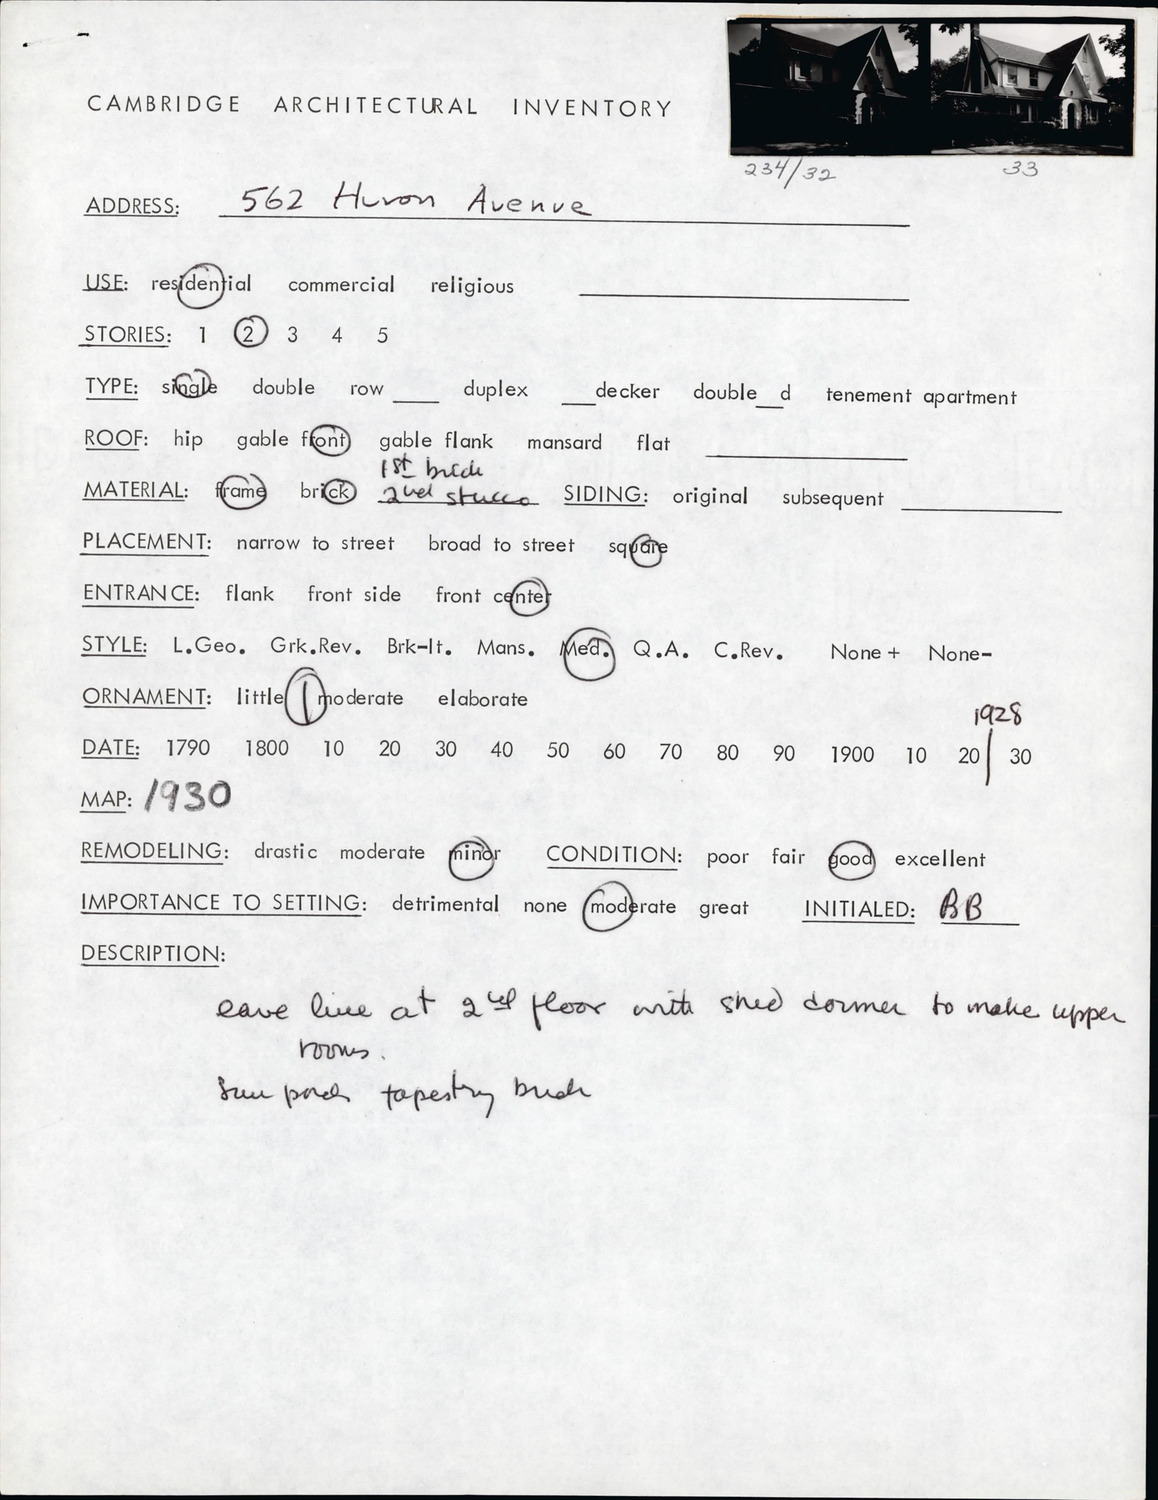 CAMBRIDGE ARCHITECTURAL INVENTORY
234/32 33
ADDRESS: 562 Huron Avenue
USE: residential commercial religious
STORIES: 1 2 3 4 5
TYPE: single double row ____ duplex ___decker double__d tenement apartment
ROOF: hip gable front gable flank mansard flat
1st brick
MATERIAL: frame brick 2nd stucco SIDING: original subsequent
PLACEMENT: narrow to street broad to street square
ENTRANCE: flank front side front center
STYLE: L.Geo. Grk.Rev. Brk-It. Mans. Med. Q.A. C.Rev. None+ None-
ORNAMENT: little moderate elaborate
1928
DATE: 1790 1800 10 20 30 40 50 60 70 80 90 1900 10 20 30
MAP: 1930
REMODELING: drastic moderate minor CONDITION: poor fair good excellent
IMPORTANCE TO SETTING: detrimental none moderate great INITIALED: BB
DESCRIPTION:
eave line at 2nd floor with shed dormer to make upper
rooms.
Sun porch tapestry brick